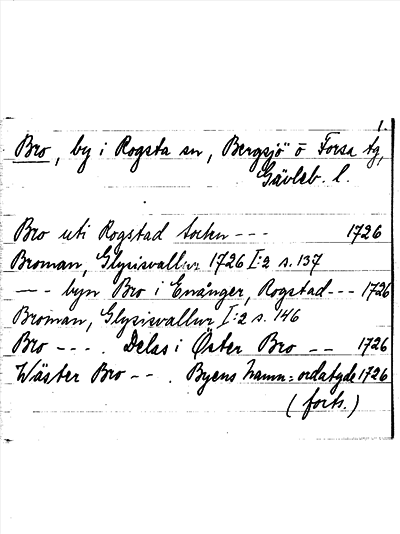 1.
Bro, by i Rogsta sn, Bergsjö o Forsa tg,
Gävleb. l.
Bro uti Rogstad sockn --- 1726
Broman, Glysisvallur 1726 I:2 s. 137
--- byn Bro i Enånger, Rogstad --- 1726
Broman, Glysisvallur I:2 s. 146
Bro --- . Delas i Öster Bro -- 1726
Wäster Bro -- . Byens namn=ordatyde 1726
(forts.)